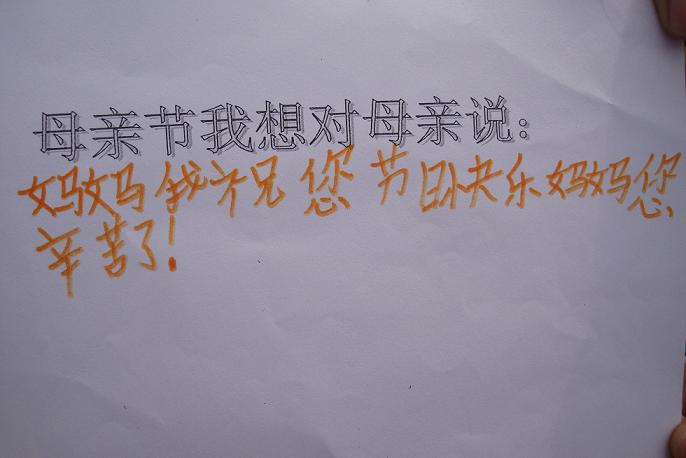 母亲节我想对母亲说：
妈妈我祝您节日快乐妈妈您
辛苦了！